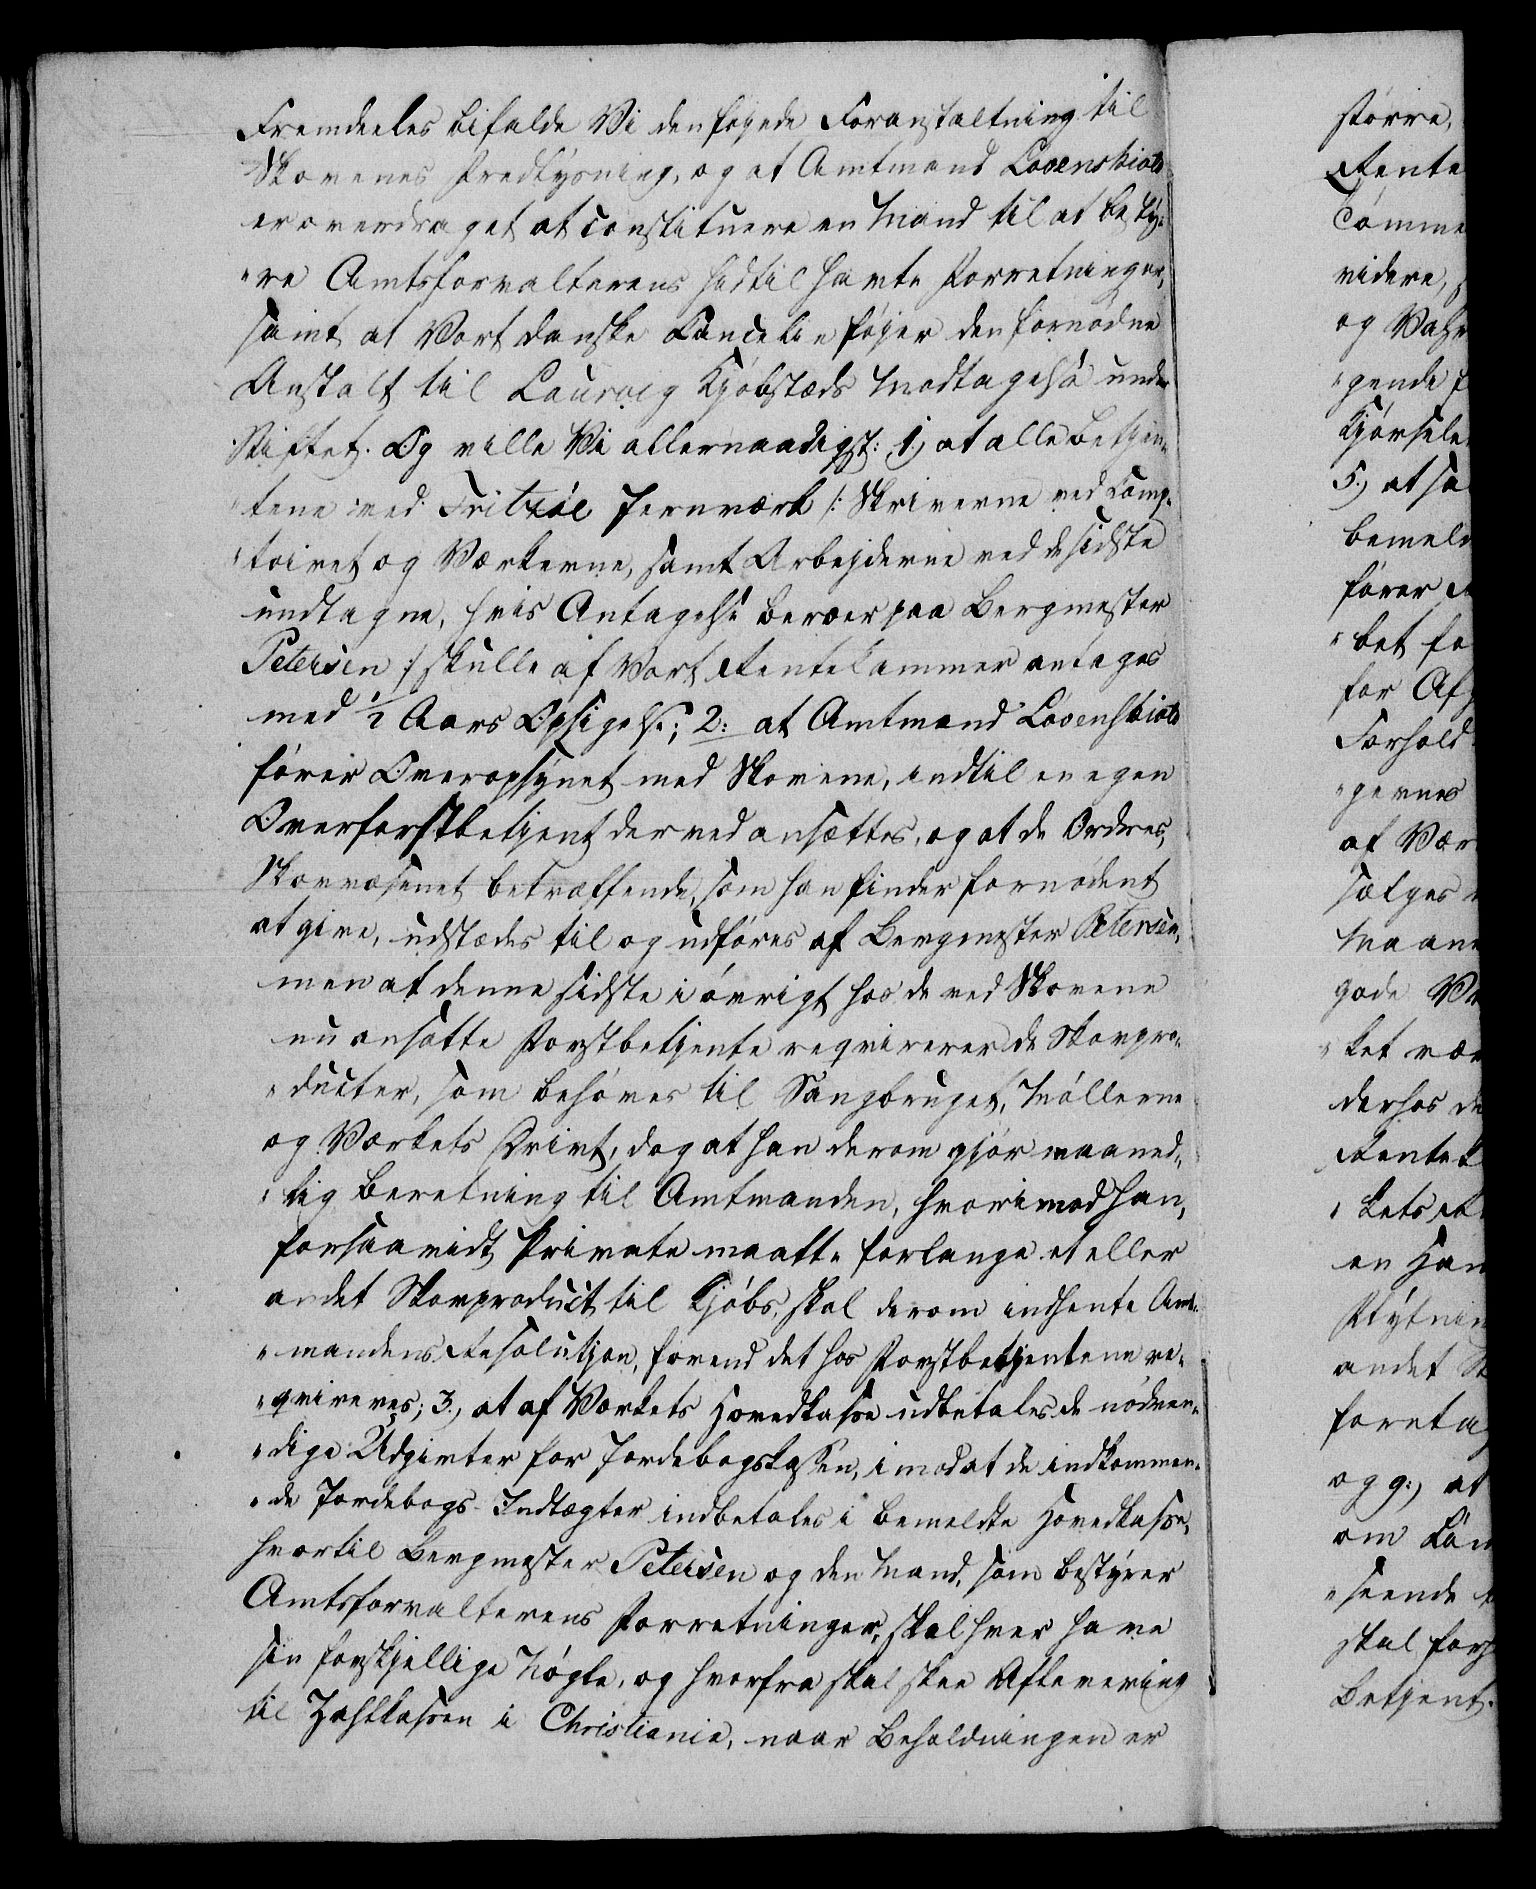 Fremdeeles bifalde Vi den føyede Foranstaltning til
Skovenes Fredlysning, og at Amtmand Løvenskiold
er overdraget at constituere en Mand til at besty-
"re Amtsforvalterens hidtil havte Forretninger,
samt at Vort danske Cancelie føjer den fornødne
Anstalt til Laurvig Kjøbstæds Modtagelse under
Stiftet. Og ville Vi allernaadigst: 1.) at alle Betjen-
"tene ved Fritzøe Jernværk /: Skriverne ved Comp-
"toiret og Værkerne, samt Arbejderne ved de sidste
undtagne, hvis Antagelse beroer paa Bergmester
Petersen :/ skulle af Vort Rentekammer antages
med 1/2 Aars Opsigelse; 2: at Amtmand Løvenskiold
fører Overopsynet med Skovene, indtil en egen
Overforstbetjent derved ansættes, og at de Ordres,
Skovvæsenet betræffende, som han finder fornødent
at give, udstædes til og udføres af Bergmester Petersen,
men at denne sidste i øvrigt hos de ved Skovene
nu ansatte Forstbetjente reqvirerer de Skovpro-
"ducter, som behøves til Saugbruget, Møllerne
og Værkets Drivt, dog at han derom gjør maaned-
"lig Beretning til Amtmanden, hvorimod han,
forsaavidt Private maatte forlange et eller
andet Skovproduct til Kjøbs, skal derom indhente Amt-
"mandens Resolution, forend det hos Forstbetjentene re-
"qvireres; 3.) at af Værkets Hovedkasse udbetales de nødven-
"dige Udgivter for Jordebogskassen, imod at de indkommen-
"de Jordebogs-Indtægter indbetales i bemeldte Hovedkasse,
hvortil Bergmester Petersen og den Mand, som bestyrer
Amtsforvalterens Forretninger, skal hver have
sin forskjellige Nøgle, og hvorfra skal skee Aflevering
til Zahlkassen i Christiania, naar Beholdningen er
større,
Rente
Comme
videre,
og Vahr
"gende f
Kjørsele
5.) at sa
bemeld
fører
"ket fo
for Af
Forhold
"gernes
af Vær
sælges
Maane
gode
"ket vær
derhos de
Rentek
"kets
en Han
Flytnin
andet
foretag
og 9:) at
om
"seende
skal forh
Betjent